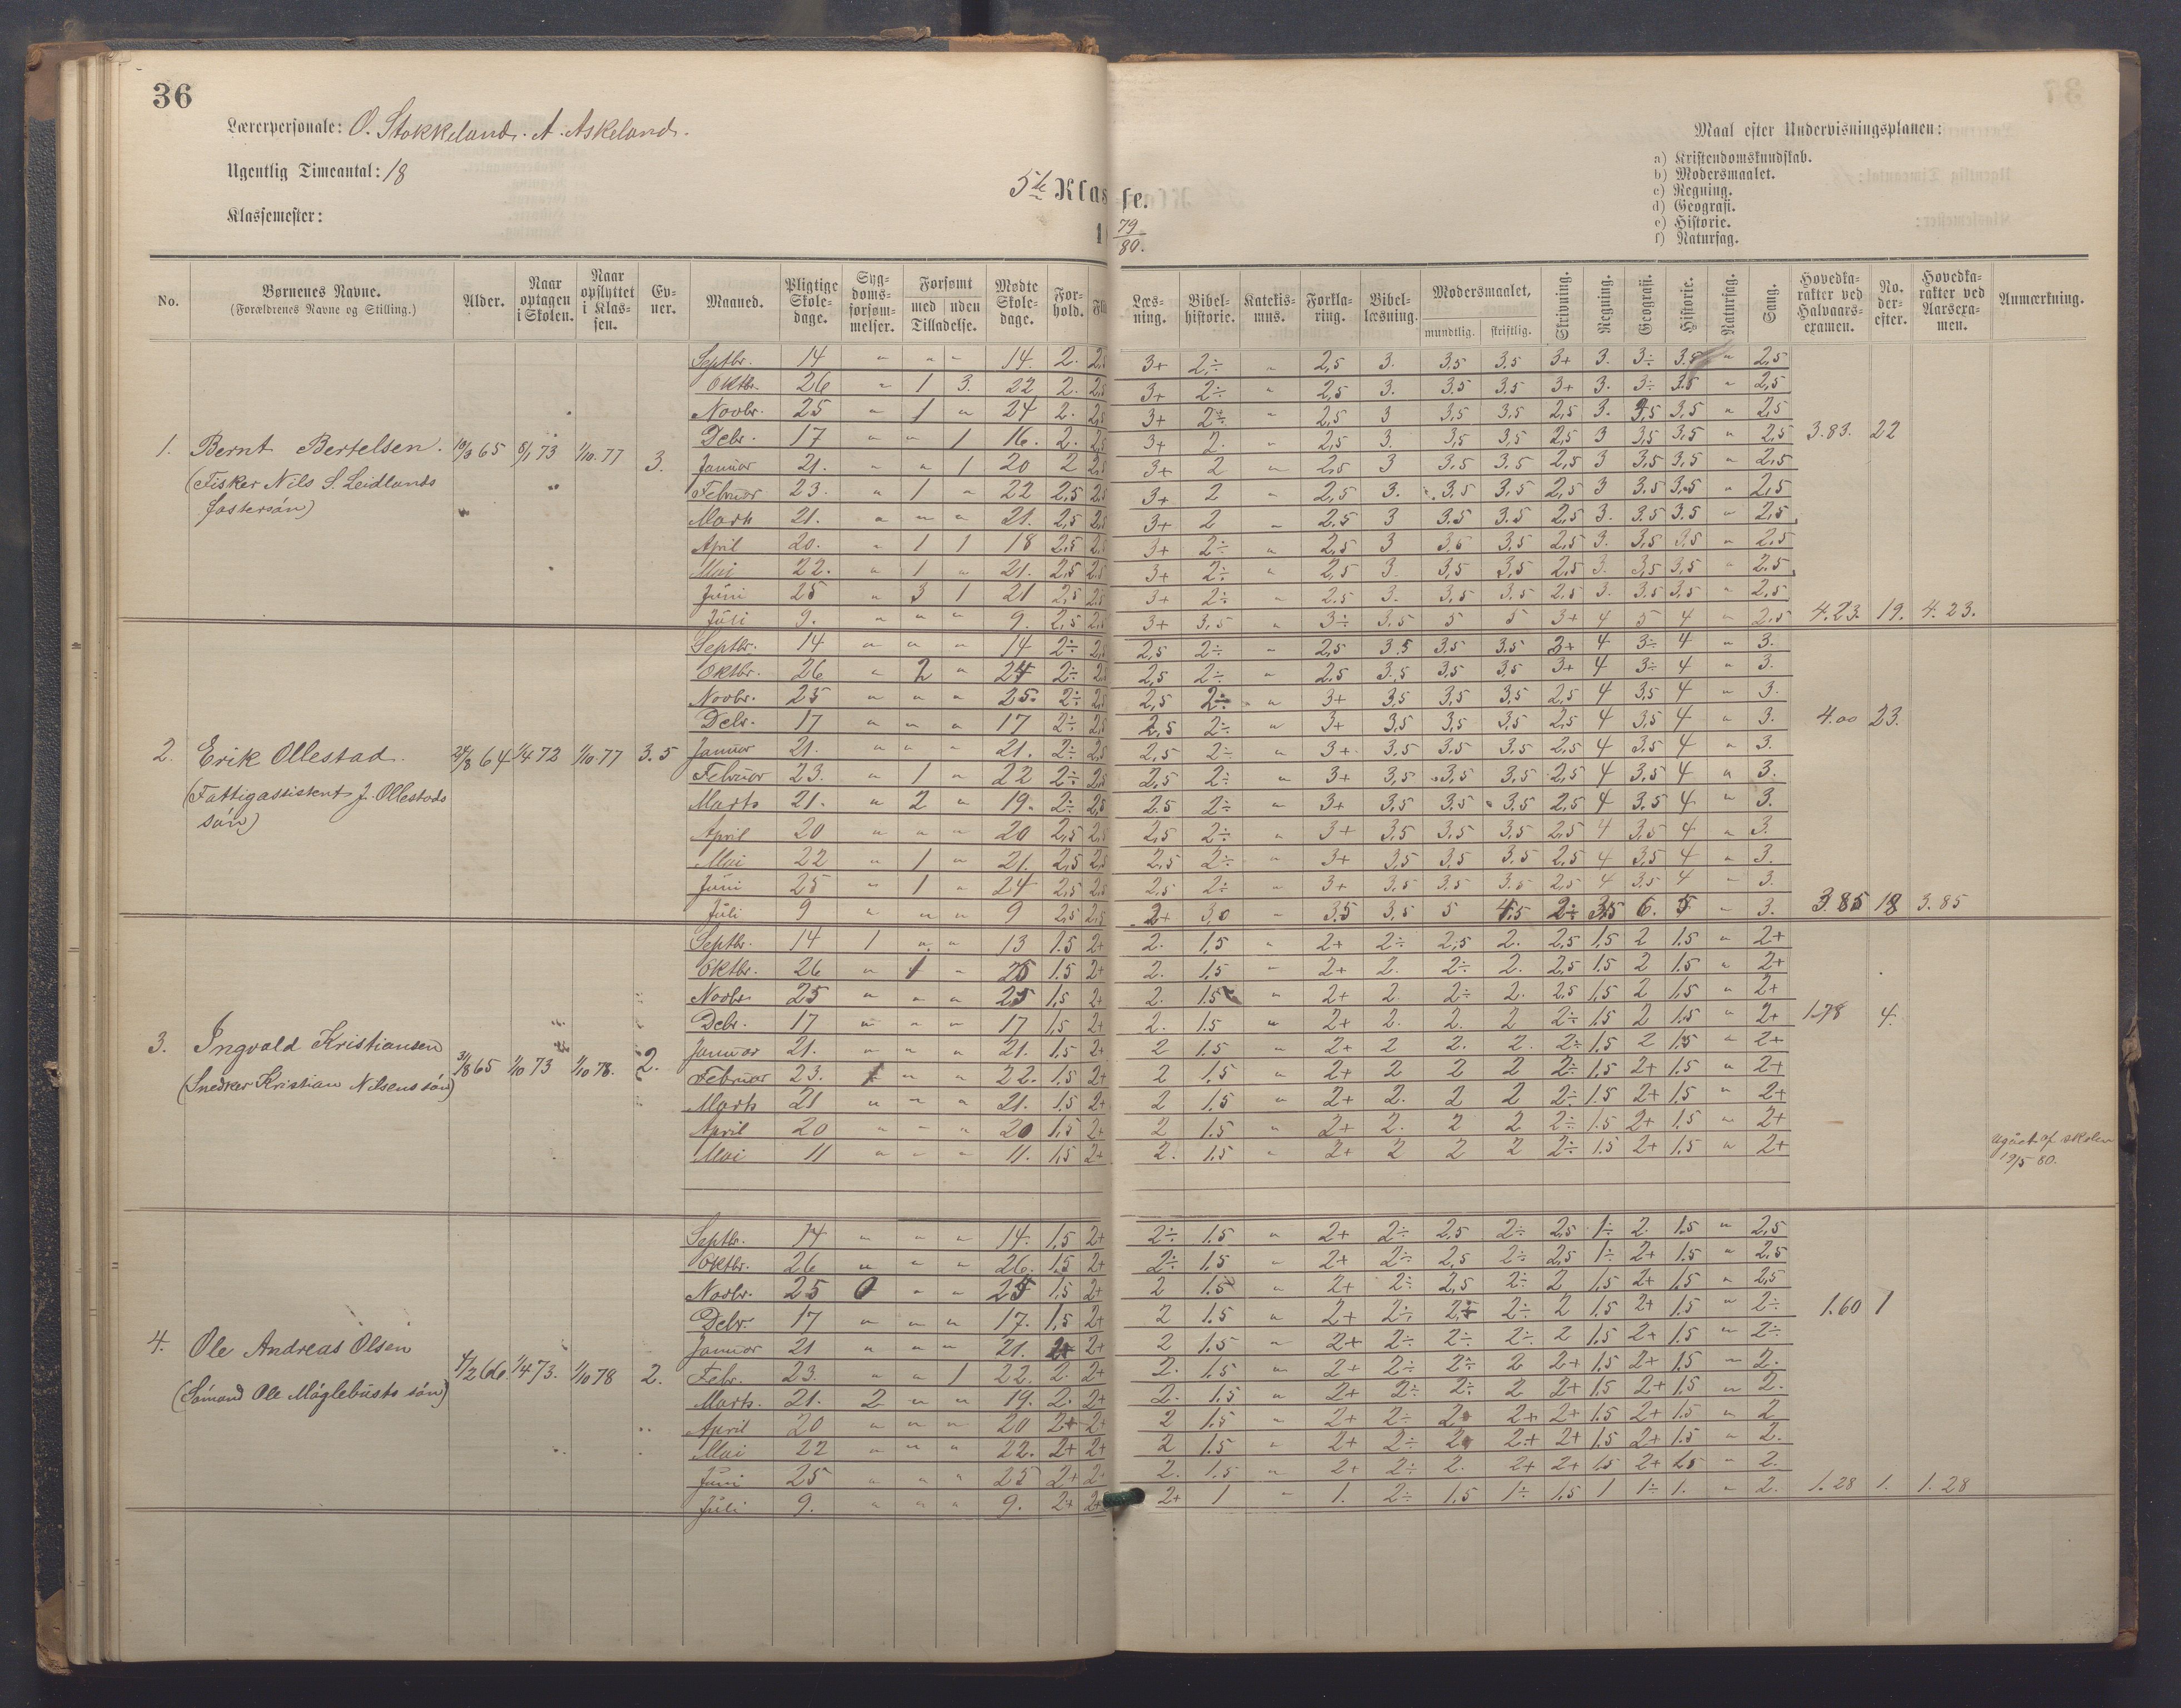 36
Lærerpersonale: O. Stokkeland. A. Askeland.
Ugentlig Timeantal: 18
Klassemester:
5te Klasse.
79/80.
Maal efter Undervisningsplanen:
a) Kristendomskundskab.
b) Modersmaalet.
c) Regning.
d) Geografi.
e) Historie.
f) Naturfag.
No. Børnenes Navne. (Forældrenes Navne og Stilling.) Alder. Naar optagen i Skolen. Naar opflyttet i Klassen. Evner. Maaned. Pligtige Skoledage. Sygdomsforsømmelser. Forsømt med uden Tilladelse. Mødte Skoledage. Forhold. Læsning. Bibelhistorie. Katekismus. Forklaring. Bibellæsning. Modersmaalet, mundtlig. skriftlig. Skrivning. Regning. Geografi. Historie. Naturfag. Sang. Hovedkarakter ved Halvaarsexamen. No. derefter. Hovedkarakter ved Aarsexamen. Anmærkning.
1. Bernt Bertelsen. 65 8/1 73 1/10 77 3.
(Fisker Nils S. Leidlands
fostersøn)
Septbr. 14 " " " 14. 2. 2,5 3+ 2÷ " 2,5 3. 3.5 3.5 3+ 3. 3÷ 3.5 " 2,5
Oktbr. 26 " 1 3. 22 2. 2,5 3+ 2÷ " 2,5 3. 3.5 3.5 3+ 3. 3÷ 3.5 " 2,5
Novbr. 25 " 1 " 24 2. 2,5 3+ 2÷ " 2,5 3 3,5 3,5 2,5 3. 3,5 3,5 " 2,5
Debr. 17 " " 1 16. 2. 2,5 3+ 2. " 2,5 3. 3,5 3,5 2,5 3 3,5 3,5 " 2,5 3.83. 22
Januar 21. " " 1 20 2 2,5 3+ 2 " 2,5 3 3.5 3.5 2,5 3 3.5 3,5 " 2,5
Februar 23. " 1 " 22 2,5 2,5 3+ 2 " 2,5 3. 3.5 3,5 2,5 3 3.5 3.5 " 2,5
Marts 21. " " " 21. 2,5 2,5 3+ 2 " 2.5 3 3.5 3.5 2,5 3. 3.5 3.5 " 2,5
April 20. " 1 1 18 2,5 2,5 3+ 2÷ " 2,5 3 3,5 3,5 2,5 3. 3,5 3,5 " 2.5
Mai 22. " 1 " 21. 2,5 2,5 3+ 2÷ " 2,5 3. 3,5 3,5 2,5 3. 3,5 3,5 " 2.5
Juni 25 " 3 1 21 2,5 2,5 3+ 2÷ " 2.5 3. 3,5 3,5 2,5 3. 3.5 3,5 " 2,5
Juli 9. " " " 9. 2,5 2,5 3+ 3,5 " 3÷ 3.5 5 5 3+ 4 5 4 " 2.5 4.23. 19. 4.23.
2. Erik Ollestad. 64 1/4 72 1/10 77 3.5
(Fattigassistent J. Ollestads
søn)
Septbr. 14 " " " 14 2÷ 2,5 2,5 2÷ " 2,5 3.5 3.5 3.5 3+ 4 3÷ 4 " 3.
Oktbr. 26 " 2 " 24 2÷ 2,5 2,5 2÷ " 2.5 3.5 3,5 3,5 3+ 4 3÷ 4 " 3.
Novbr. 25 " " " 25. 2÷ 2,5 2,5 2÷ " 3+ 3,5 3,5 3,5 2,5 4 3,5 4 " 3.
Debr. 17 " " " 17 2÷ 2,5 2,5 2÷ " 3+ 3,5 3,5 3,5 2,5 4 3,5 4 " 3. 4.00 23.
Januar 21. " " " 21. 2÷ 2,5 2,5 2÷ " 3+ 3,5 3,5 3.5 2,5 4 3,5 4 " 3.
Februar 23. " 1 " 22 2÷ 2,5 2,5 2÷ " 3+ 3,5 3,5 3,5 2,5 4 3,5 4 " 3.
Marts 21. " 2 " 19. 2÷ 2,5 2.5 2÷ " 3+ 3,5 3.5 3,5 2,5 4 3.5 4 " 3.
April 20 " " " 20 2,5 2,5 2,5 2÷ " 3+ 3,5 3.5 3,5 2,5 4 3,5 4 " 3.
Mai 22 " 1 " 21. 2,5 2,5 2,5 2÷ " 3+ 3.5 3,5 3.5 2.5 4 3,5 4 " 3.
Juni 25 " 1 " 24 2,5 2,5 2,5 2÷ " 3+ 3,5 3,5 3.5 2,5 4 3.5 4 " 3.
Juli 9 " " " 9 2,5 2,5 2+ 3,0 " 3.5 3,5 5 4.5 2÷ 3.5 6. 5 " 3. 3.85 18 3.85
3. Ingvald Kristiansen 65 1/10 73 1/10 78. 2.
(Snedker Kristian Nilsens søn)
Septbr. 14 1 " " 13 1.5 2+ 2. 1,5 " 2+ 2÷ 2,5 2. 2,5 1,5 2 1.5 " 2+
Oktbr. 26 " 1 " 25 1.5 2+ 2. 1.5 " 2+ 2. 2÷ 2. 2,5 1.5 2 1.5 " 2+
Novbr. 25 " " " 25 1,5 2+ 2. 1.5 " 2+ 2. 2÷ 2. 2.5 1,5 2 1,5 " 2+
Debr. 17 " " " 17 1,5 2+ 2. 1.5 " 2+ 2. 2. 2 2÷ 1.5 2 1,5 " 2+ 1.78 4.
Januar 21. " " " 21. 1.5 2+ 2 1.5 " 2+ 2 2. 2. 2÷ 1.5 2 1,5 " 2+
Februar 23. 1 " " 22. 1.5 2+ 2 1.5 " 2+ 2 2 2 2÷ 1.5 2+ 1.5 " 2+
Marts 21 " " " 21. 1.5 2+ 2 1.5 " 2+ 2. 2 2 2÷ 1.5 2+ 1,5 " 2+
April 20 " " " 20 1,5 2+ 2 1.5 " 2+ 2. 2 2 2÷ 1.5 2+ 1.5 " 2+
Mai 11 " " " 11. 1,5 2+ 2. 1.5 " 2+ 2 2 2 2÷ 1.5 2+ 1.5 " 2+ af skolen
80.
4. Ole Andreas Olsen 66. 1/4 73. 1/10 78 2.
(Sømand Ole Møglebusts søn)
Septbr. 14 " " " 14. 1,5 2+ 2÷ 1.5 " 2+ 2÷ 2.5 2÷ 2,5 1÷ 2. 1.5 " 2,5
Oktbr. 26 " " " 26. 1.5 2+ 2÷ 1.5 " 2+ 2÷ 2,5 2÷ 2,5 1÷ 2+ 1.5 " 2,5
Novbr. 25 0 " " 25 1,5 2+ 2 1.5 " 2+ 2÷ 2,5 2÷ 2 1,5 2+ 1,5 " 2,5
Debr. 17 " " " 17. 1,5 2+ 2 1.5 " 2+ 2÷ 2÷ 2÷ 2 1.5 2+ 1.5 " 2÷ 1.60 1
Januar 21 " " " 21. 2+ 2+ 2 1.5 " 2+ 2÷ 2÷ 2÷ 2 1.5 2+ 1.5 " 2÷
Febr. 23. " " 1 22. 2. 2+ 2. 1.5 " 2+ 2÷ 2÷ 2 2+ 1.5 2+ 1.5 " 2.
Marts. 21. 2 " " 19. 2. 2+ 2. 1.5 " 2+ 2÷ 2÷ 2 2+ 1.5 2+ 1.5 " 2.
April 20 " " " 20 2+ 2+ 2 1.5 " 2+ 2÷ 2 2+ 2+ 1.5 2+ 1.5 " 2
Mai 22 " " " 22. 2+ 2+ 2 1.5 " 2+ 2÷ 2 2+ 2+ 1.5 2+ 1.5 " 2.
Juni 25 " " " 25 2+ 2+ 2. 1.5 " 2+ 2÷ 2. 2+ 2+ 1.5 2+ 1.5 " 2.
Juli 9. " " " 9. 2+ 2+ 2+ 1 " 1. 2÷ 1,5 1÷ 1,5 1 1÷ 1. " 2. 1.28 1. 1.28